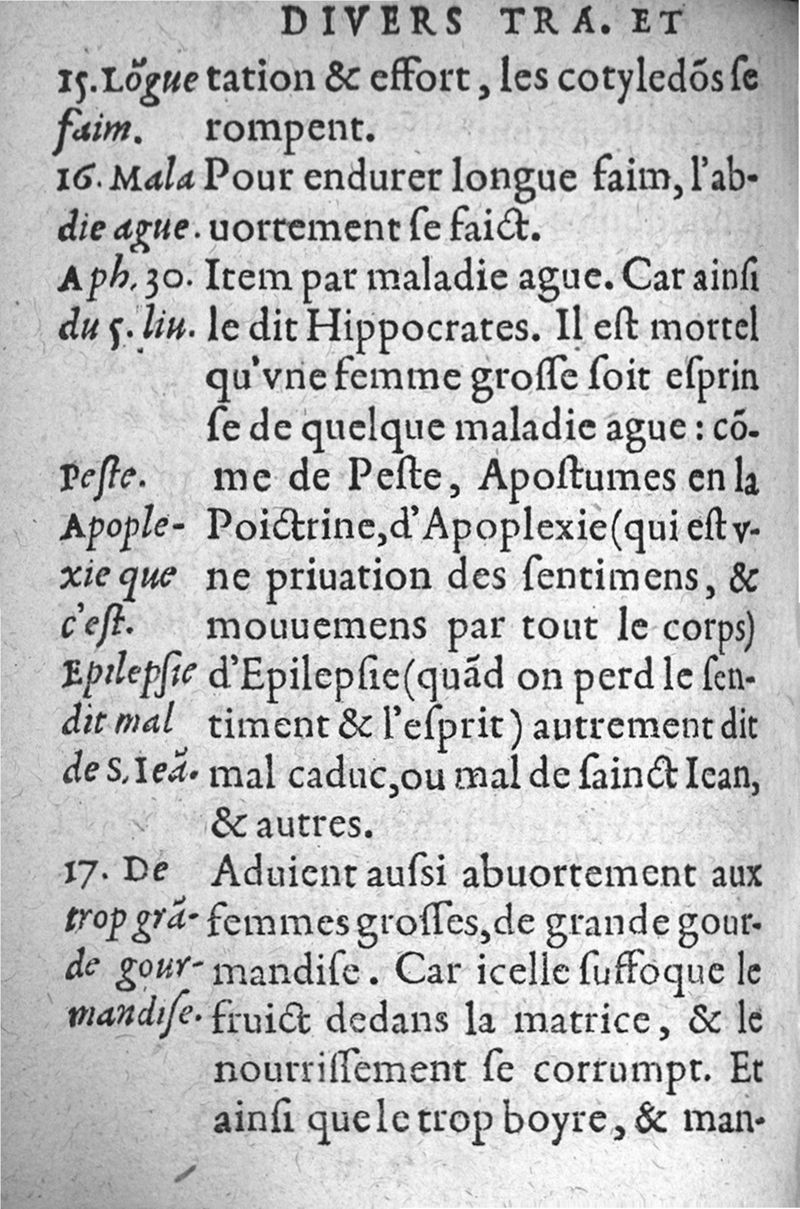 DIVERS TRA. ET
15. Lõgue
faim.
16. Mala
die ague.
Aph. 30.
du 5. liu.
Peſte.
Apople-
xie que
c'eſt.
Epilepſie
dit mal
de S. Ieã.
17. De
trop grã-
de gour-
mandiſe.
tation & effort, les cotyledõs ſe
rompent.
Pour endurer longue faim, l'ab-
uortement ſe faict.
Item par maladie ague. Car ainſi
le dit Hippocrates. Il eſt mortel
qu'vne femme groſſe ſoit eſprin
ſe de quelque maladie ague : cõ-
me de Peſte, Apoſtumes en la
Poictrine, d'Apoplexie (qui eſt v-
ne priuation des ſentimens, &
mouuemens par tout le corps)
d'Epilepſie (quãd on perd le ſen-
timent & l'eſprit) autrement dit
mal caduc, ou mal de ſainct Iean,
& autres.
Aduient auſsi abuortement aux
femmes groſſes, de grande gour-
mandiſe. Car icelle ſuffoque le
fruict dedans la matrice, & le
nourriſſement ſe corrumpt. Et
ainſi que le trop boyre, & man-